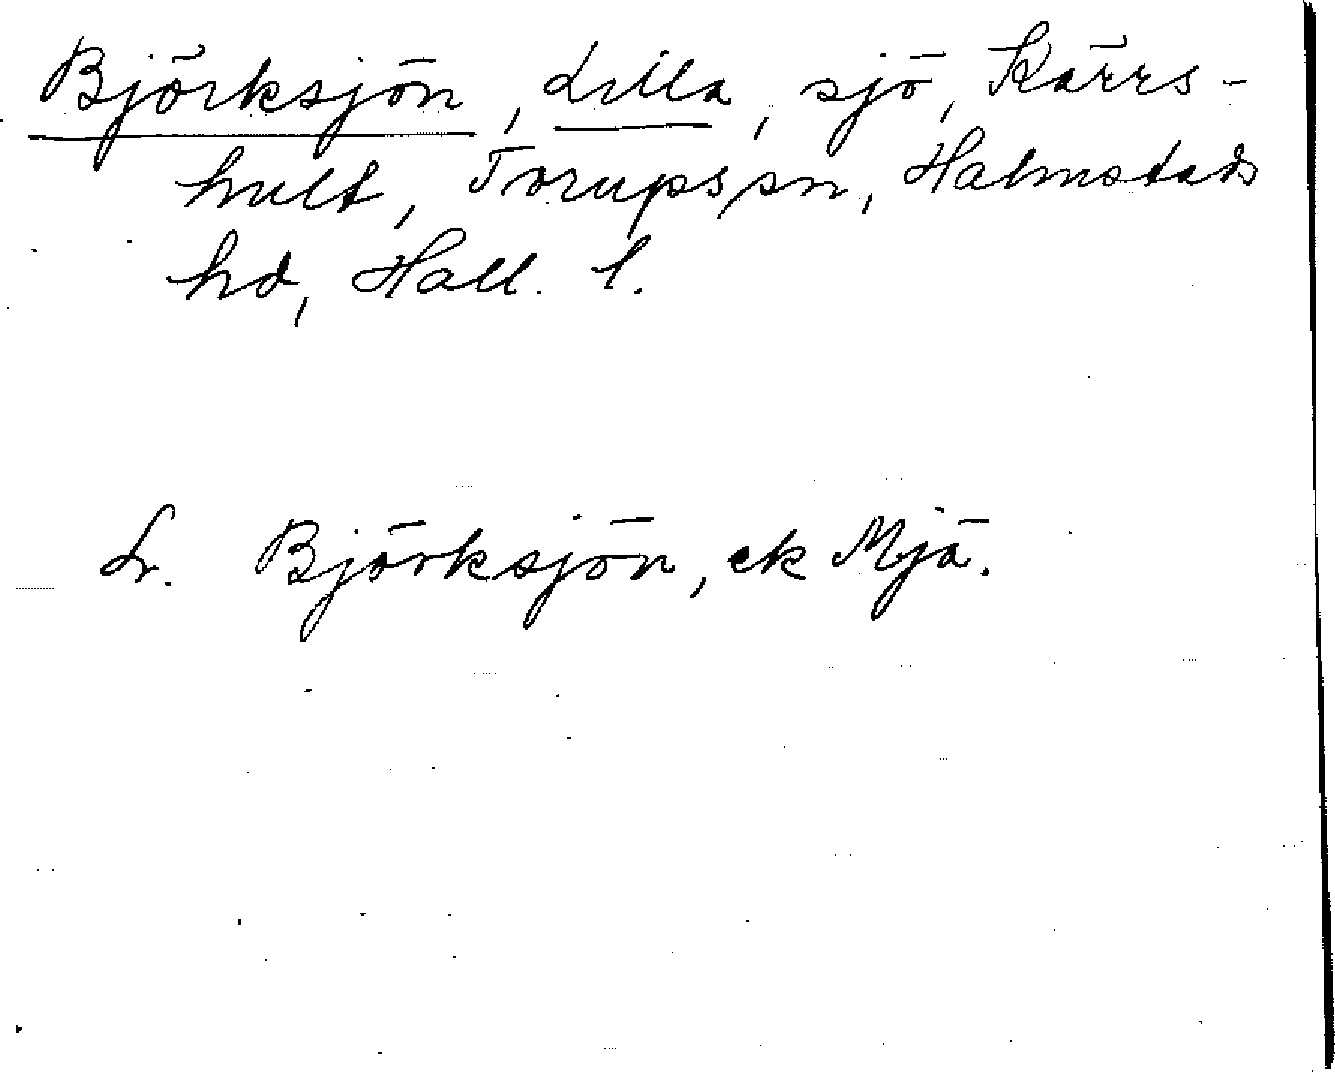 Björksjön, Lilla, sjö, Kärrs-
hult, Torups sn, Halmstads
hd, Hall. l.
L. Björksjön, ek Mjä.